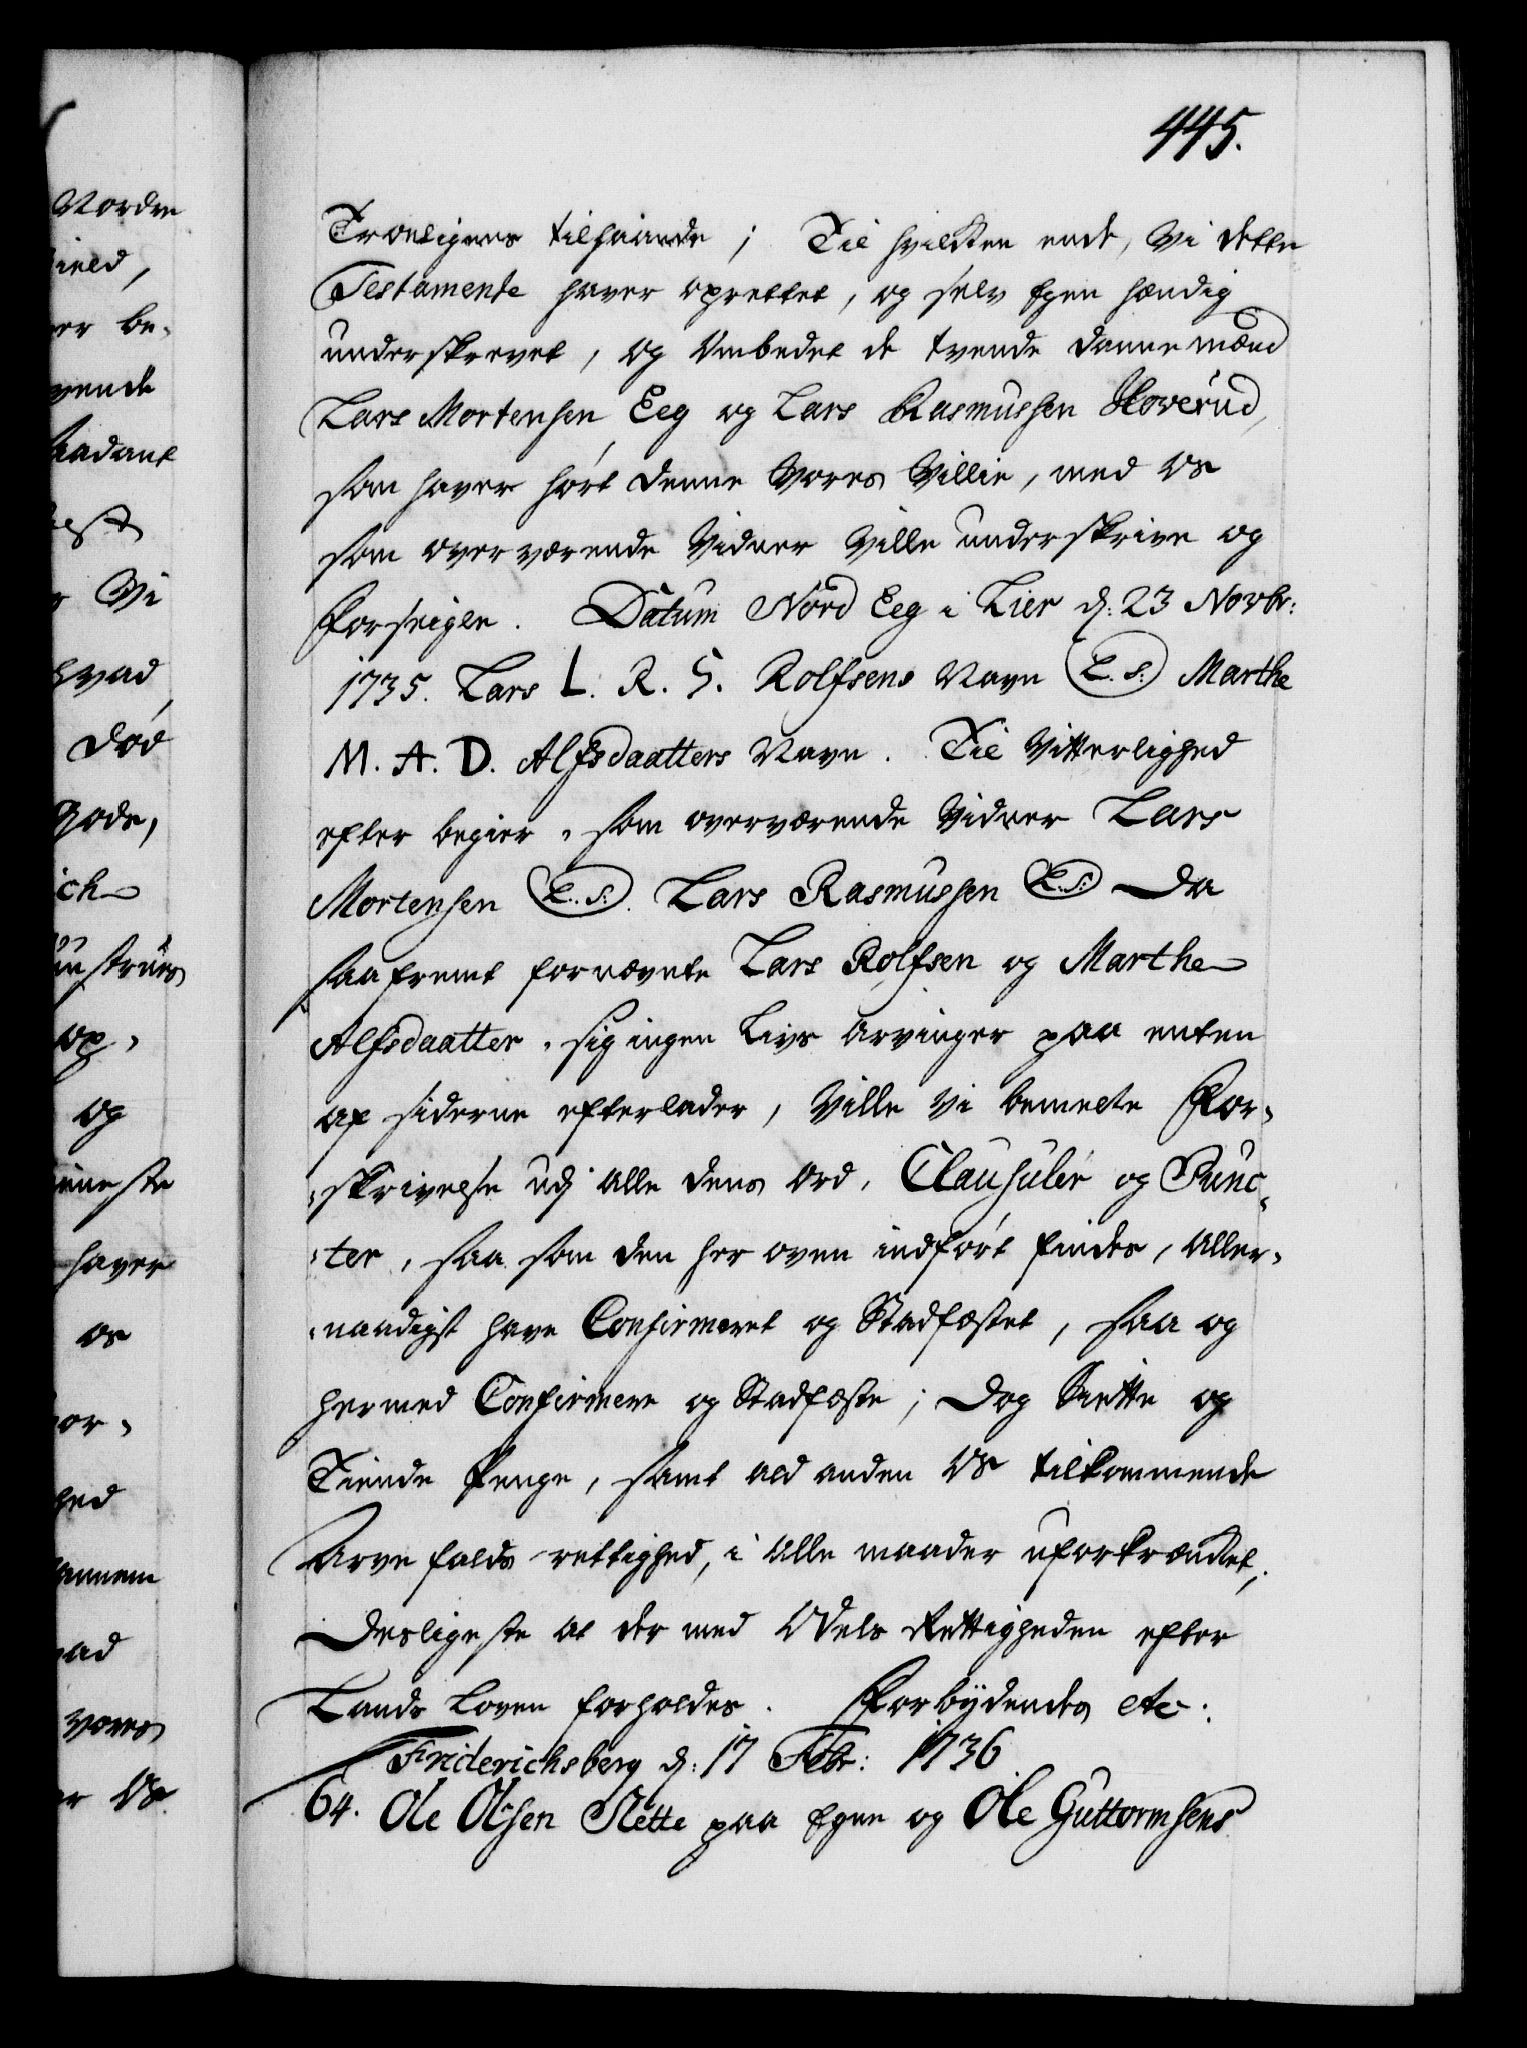 445.
Troeligens tilhaande; Til hvilken ende, Vi dette
Testamente haver oprettet, og selv Egen hændig
underskrevet, og Ombedet de tvende Dannemænd
Lars Mortensen Eeg og Lars Rasmussen Hoverud,
som haver hört denne Vores Villie, med Os
som overværende Vidner Ville underskrive og
Forseigle. Datum Nord Eeg i Lier d: 23 Novbr:
1735. Lars L. R. S. Rolfsens Navn L. S: Marthe
M. A. D. Alfsdaatters Navn. Til Vitterlighed
efter begier, som overværende Vidner Lars
Mortensen L. S:. Lars Rasmussen L. S: Da
saafremt fornævnte Lars Rolfsen og Marthe
Alfsdaatter, sig ingen Livs Arvinger paa enten
af siderne efterlader, Ville Vi bemelte For-
-skrivelse udj alle dens Ord, Clausuler og Punc-
-ter, saa som den her oven indfört findes, Aller-
-naadigst have Confirmeret og Stadfæstet, saa og
hermed Confirmere og Stadfæste; Dog Siette og
Tiende Penge, samt ald anden Os tilkommende
Arve falds rettighed, i alle maader uforkrænket,
Desligeste at der med Odels Rettigheden efter
Lands Loven forholdes. Forbydendes etc:
Friderichsberg d: 17 Febr: 1736
64. Ole Olsen Slette paa Egne og Ole Guttormsens
Norden
ield,
er be-
vende
saadant
Vi
hvad
død
gode,
ich
ustrues
op-
og
ieneste
haver
os
or-
hed
annem
ad
vores
er Os